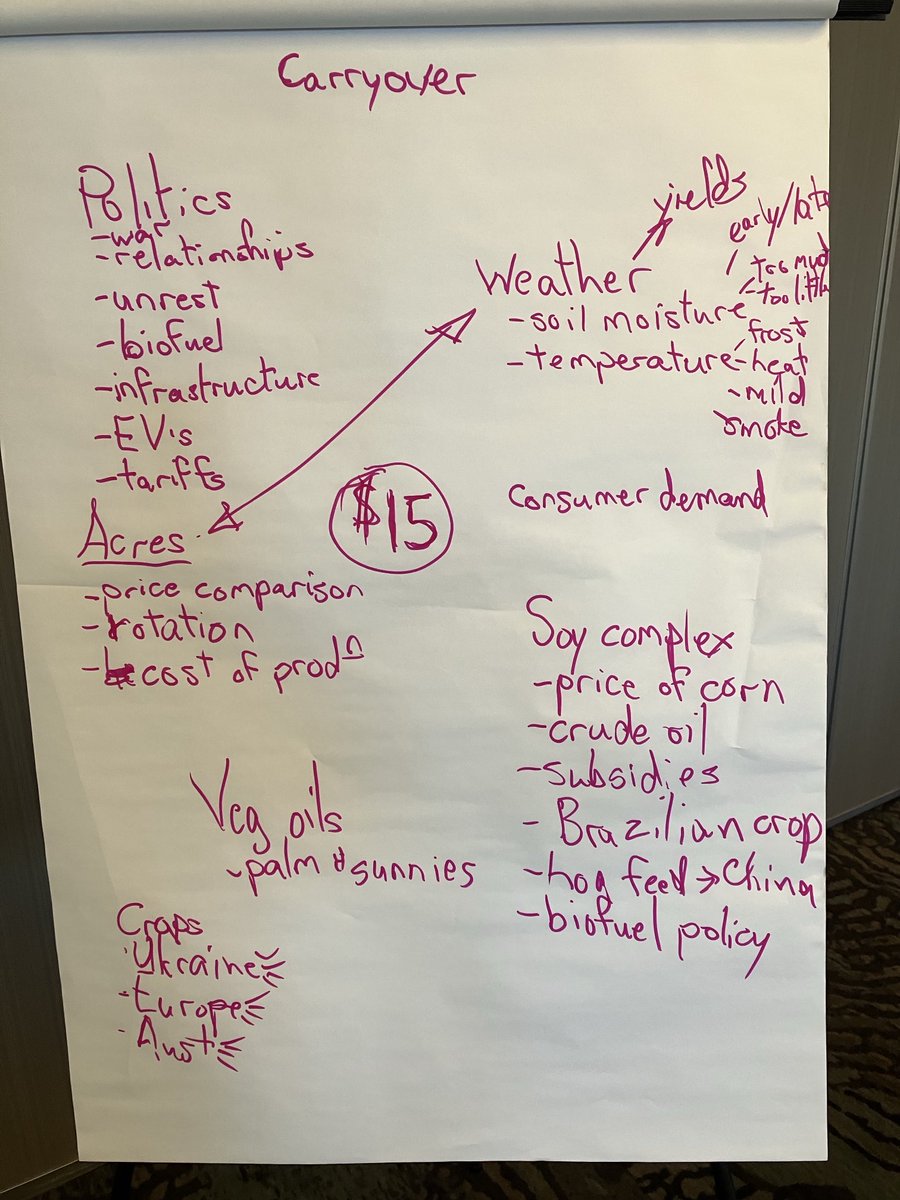 Carryover
Politics
-war
-relationships
-unrest
-biofuel
-infrastructure
-EV's
-tariffs
Acres
-price comparison
-rotation
-cost of prodn
yields
Weather
early/late
too much
-too little
-soil moisture
frost
-temperature-heat
-mild
smoke
$15
Consumer demand
Soy complex
-price of corn
-crude oil
-subsidies
-Brazilian crop
-hog feed→China
-biofuel policy
Veg oils
-palm & sunnies
Crops
·Ukraine
-Europe
·Aust